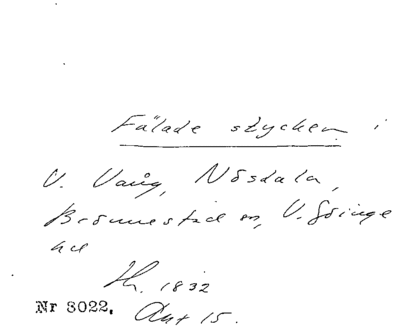 Fälade stycken i
V. Vång, Nösdala,
Brönnestad sn, V. Göinge
hd
Hr. 1832
Nr 3022. Akt 15.